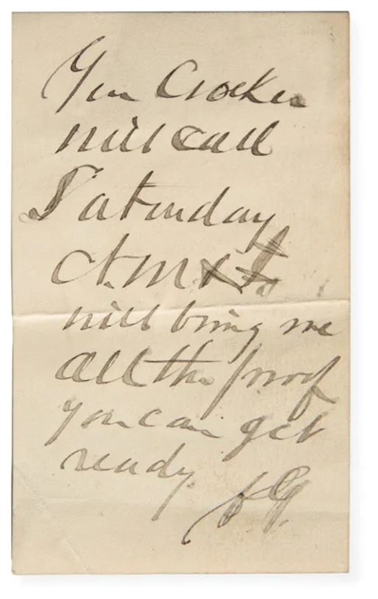 Gen Crocker
will call
Saturday
A.M. &
will bring me
all the proof
you can get
ready.